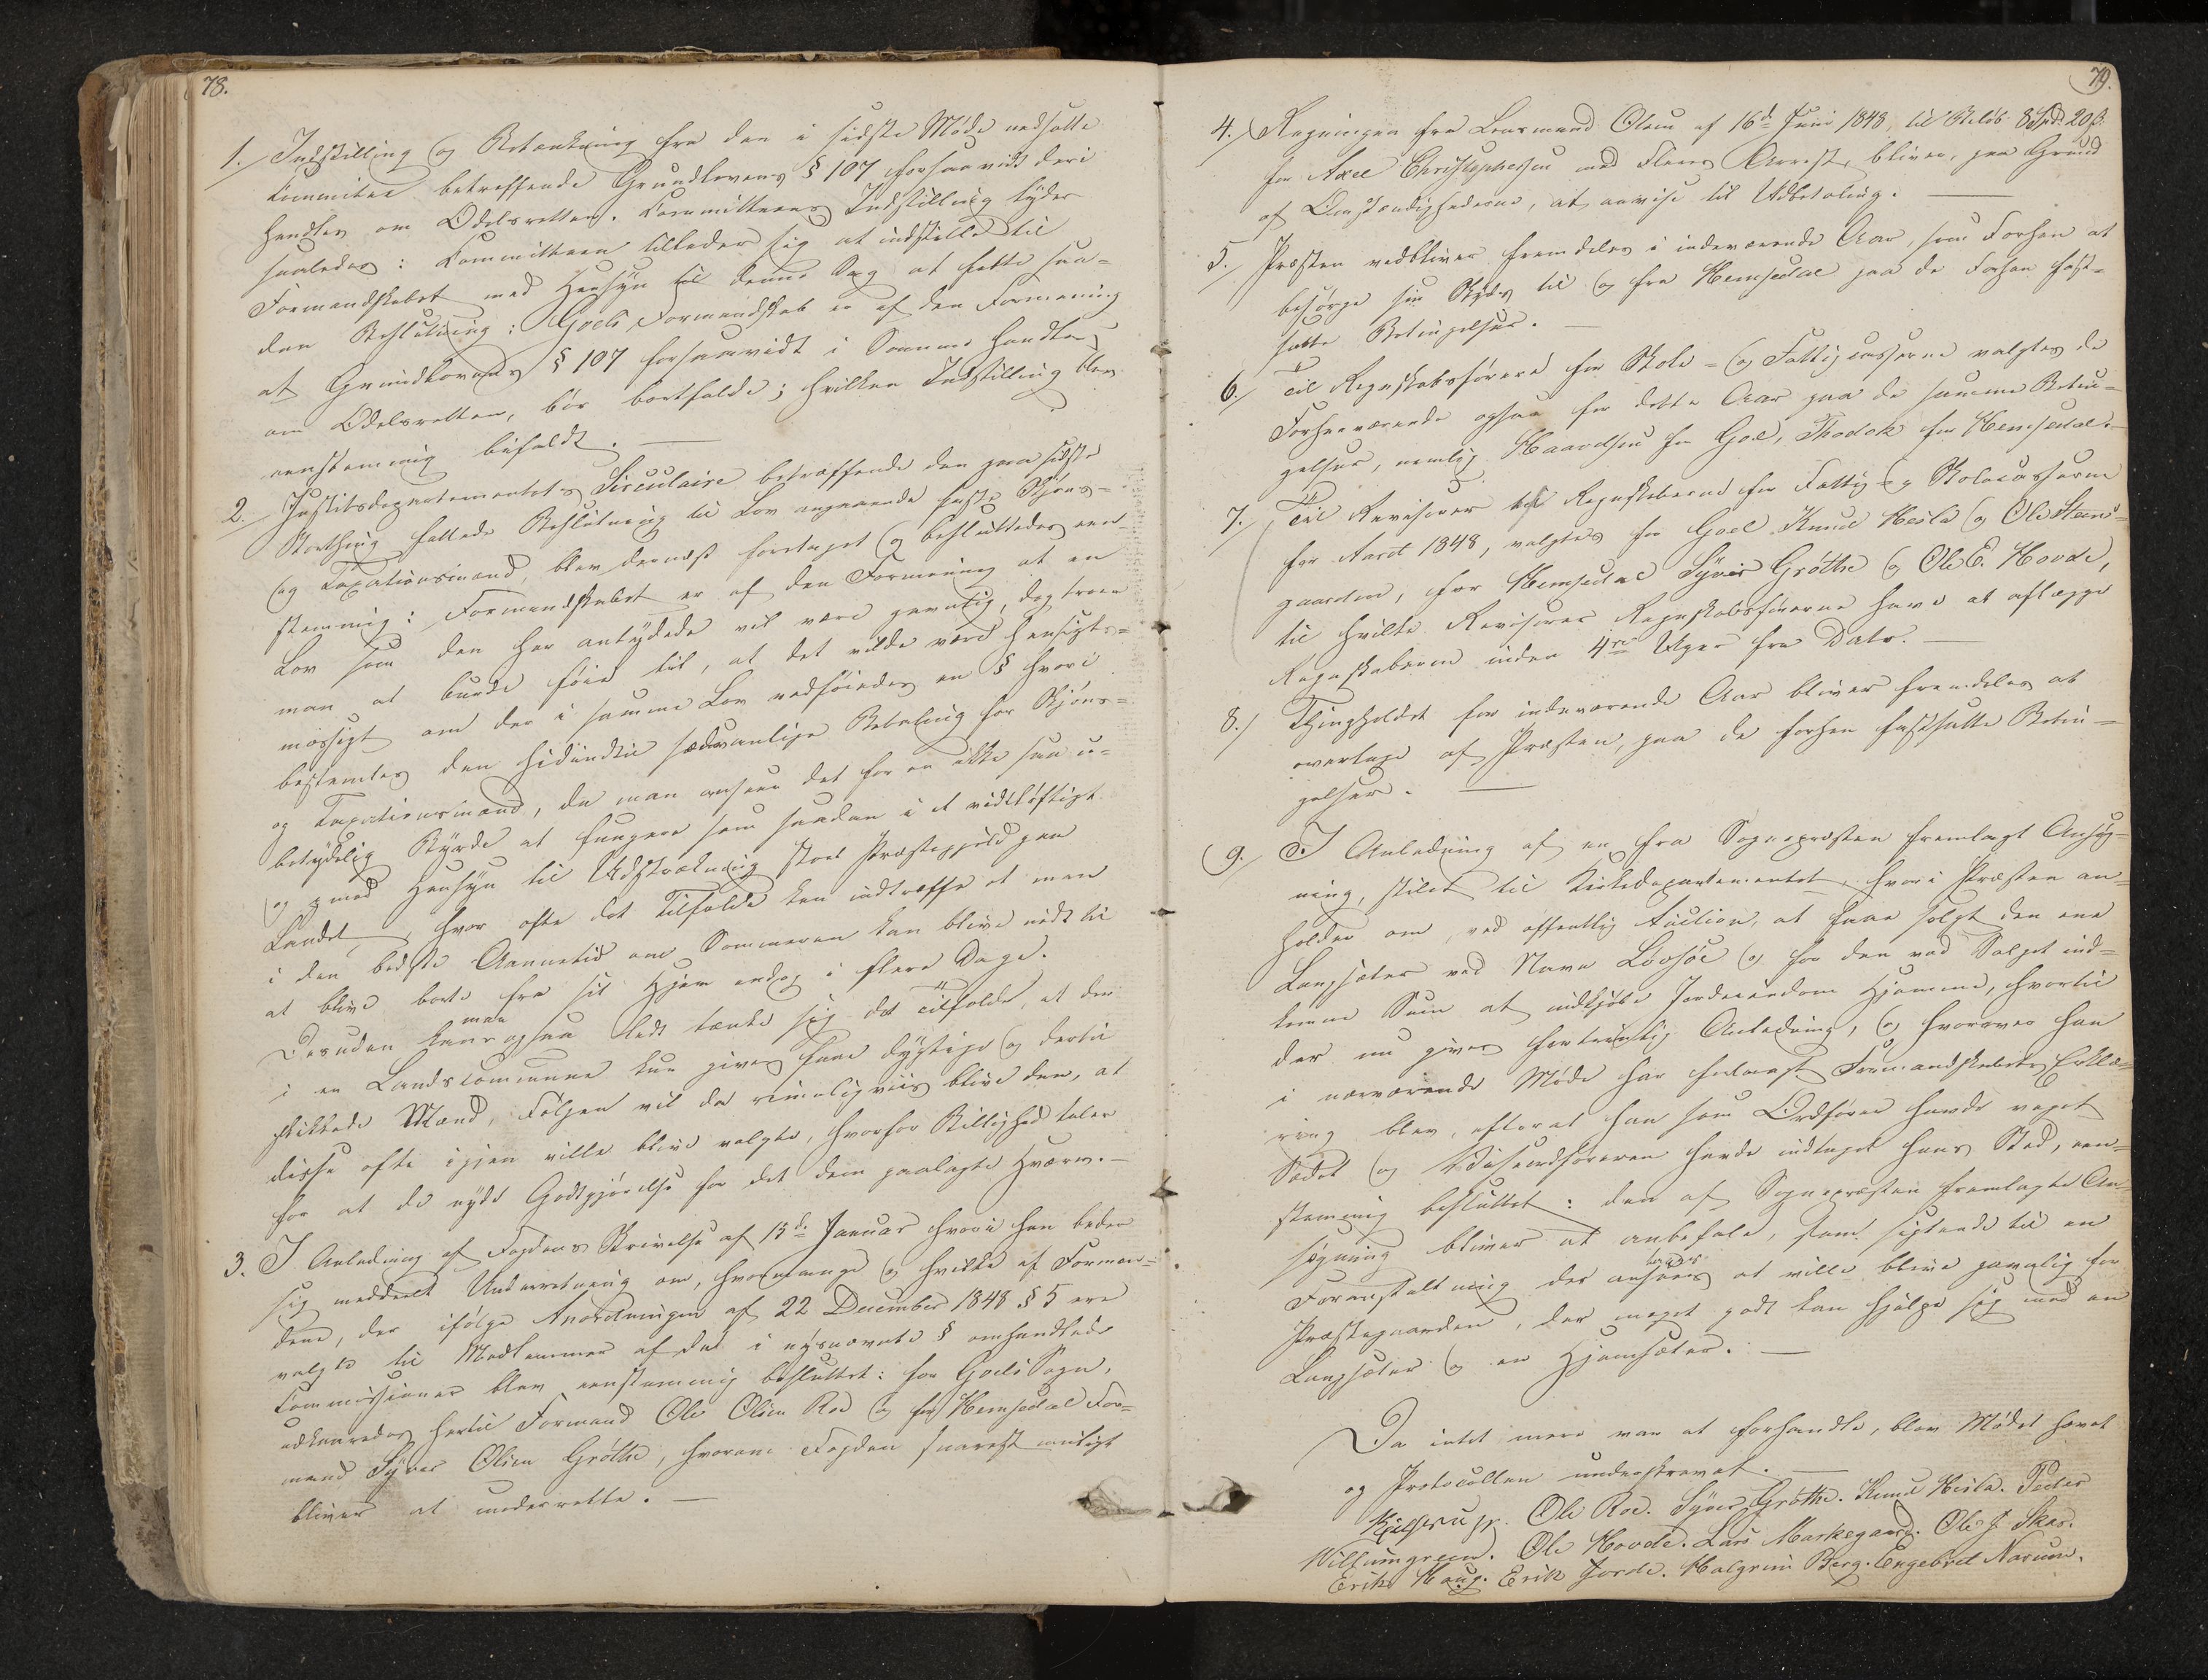 78.
1. Indstilling og Betænkning fra den i sidste Møde nedsatte
Committee betreffende Grundlovens § 107 forsaavidt deri
handles om Odelsretten. Committeens Indstilling lyder
saaledes: Committeen tillader sig at indstille til
Formandskabet med Hensyn til denne Sag at fatte saa-
dan Beslutning: Goels Formandskab er af den Formening
at Grundlovens § 107 forsaavidt i Samme handles
om Odelsretten, bør bortfalde; hvilken Indstilling blev
eenstemmig bifaldt. —
2. Justitsdepartementets Circulaire betræffende den paa sidste
Storthing fattede Beslutning til Lov angaaende faste Skjøns-
og Taxationsmænd, blev dernæst foretaget og besluttedes een-
stemmig: Formandskabet er af den Formening at en
Lov som den her antydede vil være gavnlig, dog troer
man at burde føie til, at det vilde være hensigts-
mæssigt om der i samme Lov vedføiedes en § hvori
bestemtes den hidindtil sædvanlige Betaling for Skjøns-
og Taxationsmænd, da man anseer det for en ikke saa u-
betydelig Byrde at fungere som saadan i et vidtløftigt
og med Hensyn til Udstrækning stort Præstegjeld paa
Landet, hvor ofte det Tilfælde kan indtræffe at man
i den bedste Aannetid om Sommeren kan blive nødt til
at blive borte fra sit Hjem endog i flere Dage.
Desuden kan man ogsaa let tænke sig det Tilfælde, at der
i en Landscommune kun gives faae dygtige og dertil
skikkede Mænd, Følgen vil da rimeligviis blive den, at
disse ofte igjen ville blive valgte, hvorfor Billighed taler
for at de nyde Godtgjørelse for det dem paalagte Hværv. —
3. I Anledning af Fogdens Skrivelse af 13d. Januar hvori han beder
sig meddeelt Underretning om, hvormange og hvilke af Forman-
dene, der ifølge Anordningen af 22 December 1848 § 5 ere
valgte til Medlemmer af de i nysnævnte § omhandlede
Commissioner blev eenstemmig besluttet: for Goels Sogn,
udkaaredes hertil Formand Ole Olsen Roe og for Hemsedal For-
mand Syver Olsen Grøthe, hvorom Fogden snarest muligt
bliver at underrette. —
79.
4. Regningen fra Lensmand Olsen af 16d. Juni 1848, til Beløb 8 Spd. 20 ß.
for Axel Christophersen med Fleres Arrest, bliver, paa Grund
af Omstændighederne, at anvise til Udbetaling. —
5. Præsten vedbliver fremdeles i indeværende Aar, som Forhen at
besørge sin Skyds til og fra Hemsedal paa de forhen fast-
satte Betingelser. —
6. Til Regnskabsførere for Skole- og Fattigcasserne valgtes de
Forhenværende ogsaa for dette Aar paa de samme Betin-
gelser, nemlig Haavelsen for Goel, Thodok for Hemsedal. —
7. Til Revisorer ved Regnskaberne for Fattig- og Skolecasserne
for Aaret 1848, valgtes for Goel Knud Hesla og Ole Steins-
gaarden, for Hemsedal Syver Grøthe og Ole E. Hovde,
til hvilke Revisorer Regnskabsførerne have at aflægge
Regnskaberne inden 4re Uger fra Dato. —
8. Thingholdet for indeværende Aar bliver fremdeles at
overtage af Præsten, paa de forhen fastsatte Betin-
gelser. —
9. I Anledning af en fra Sognepræsten fremlagt Ansøg-
ning, stilet til Kirkedepartementet, hvori Præsten an-
holder om, ved offentlig Auction, at faae solgt den ene
Langsæter ved Navn Løvsøe og for den ved Salget ind-
komne Sum at indkjøbe Jordeiendom Hjemme, hvortil
der nu gives fortrinlig Anledning, og hvorover han
i nærværende Møde har forlangt Formandskabets Erklæ-
ring blev, efterat han som Ordfører havde veget
Sædet og Viceordføreren havde indtaget hans Sted, een-
stemmig besluttet: den af Sognepræsten fremlagte An-
søgning bliver at anbefale, som sigtende til en
Foranstaltning der ansees at ville blive gavnlig for
Præstegaarden, der meget godt kan hjælpe sig med en
Langsæter og en Hjemsæter. —
Da intet mere var at forhandle, blev Mødet hævet
og Protocollen underskrevet. —
Ole Roe. Syver Grøthe. Knud Hesla. Peder
Ole Hovde. Lars Markegaard. Ole J. Skar.
Erik Haug. Erik Jorde. Halgrim Berg. Engebret Narum.